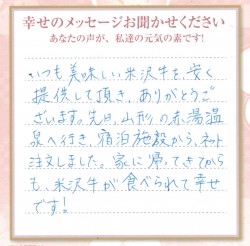 幸せのメッセージお聞かせください
あなたの声が、私達の元気の素です!
いつも美味しい米沢牛を、安く
提供して頂き、ありがとうご
ざいます。先日、山形の赤湯温
泉へ行き、宿泊施設から、ネット
注文しました。家に帰ってきてから
も、米沢牛が食べられて幸せ
です!